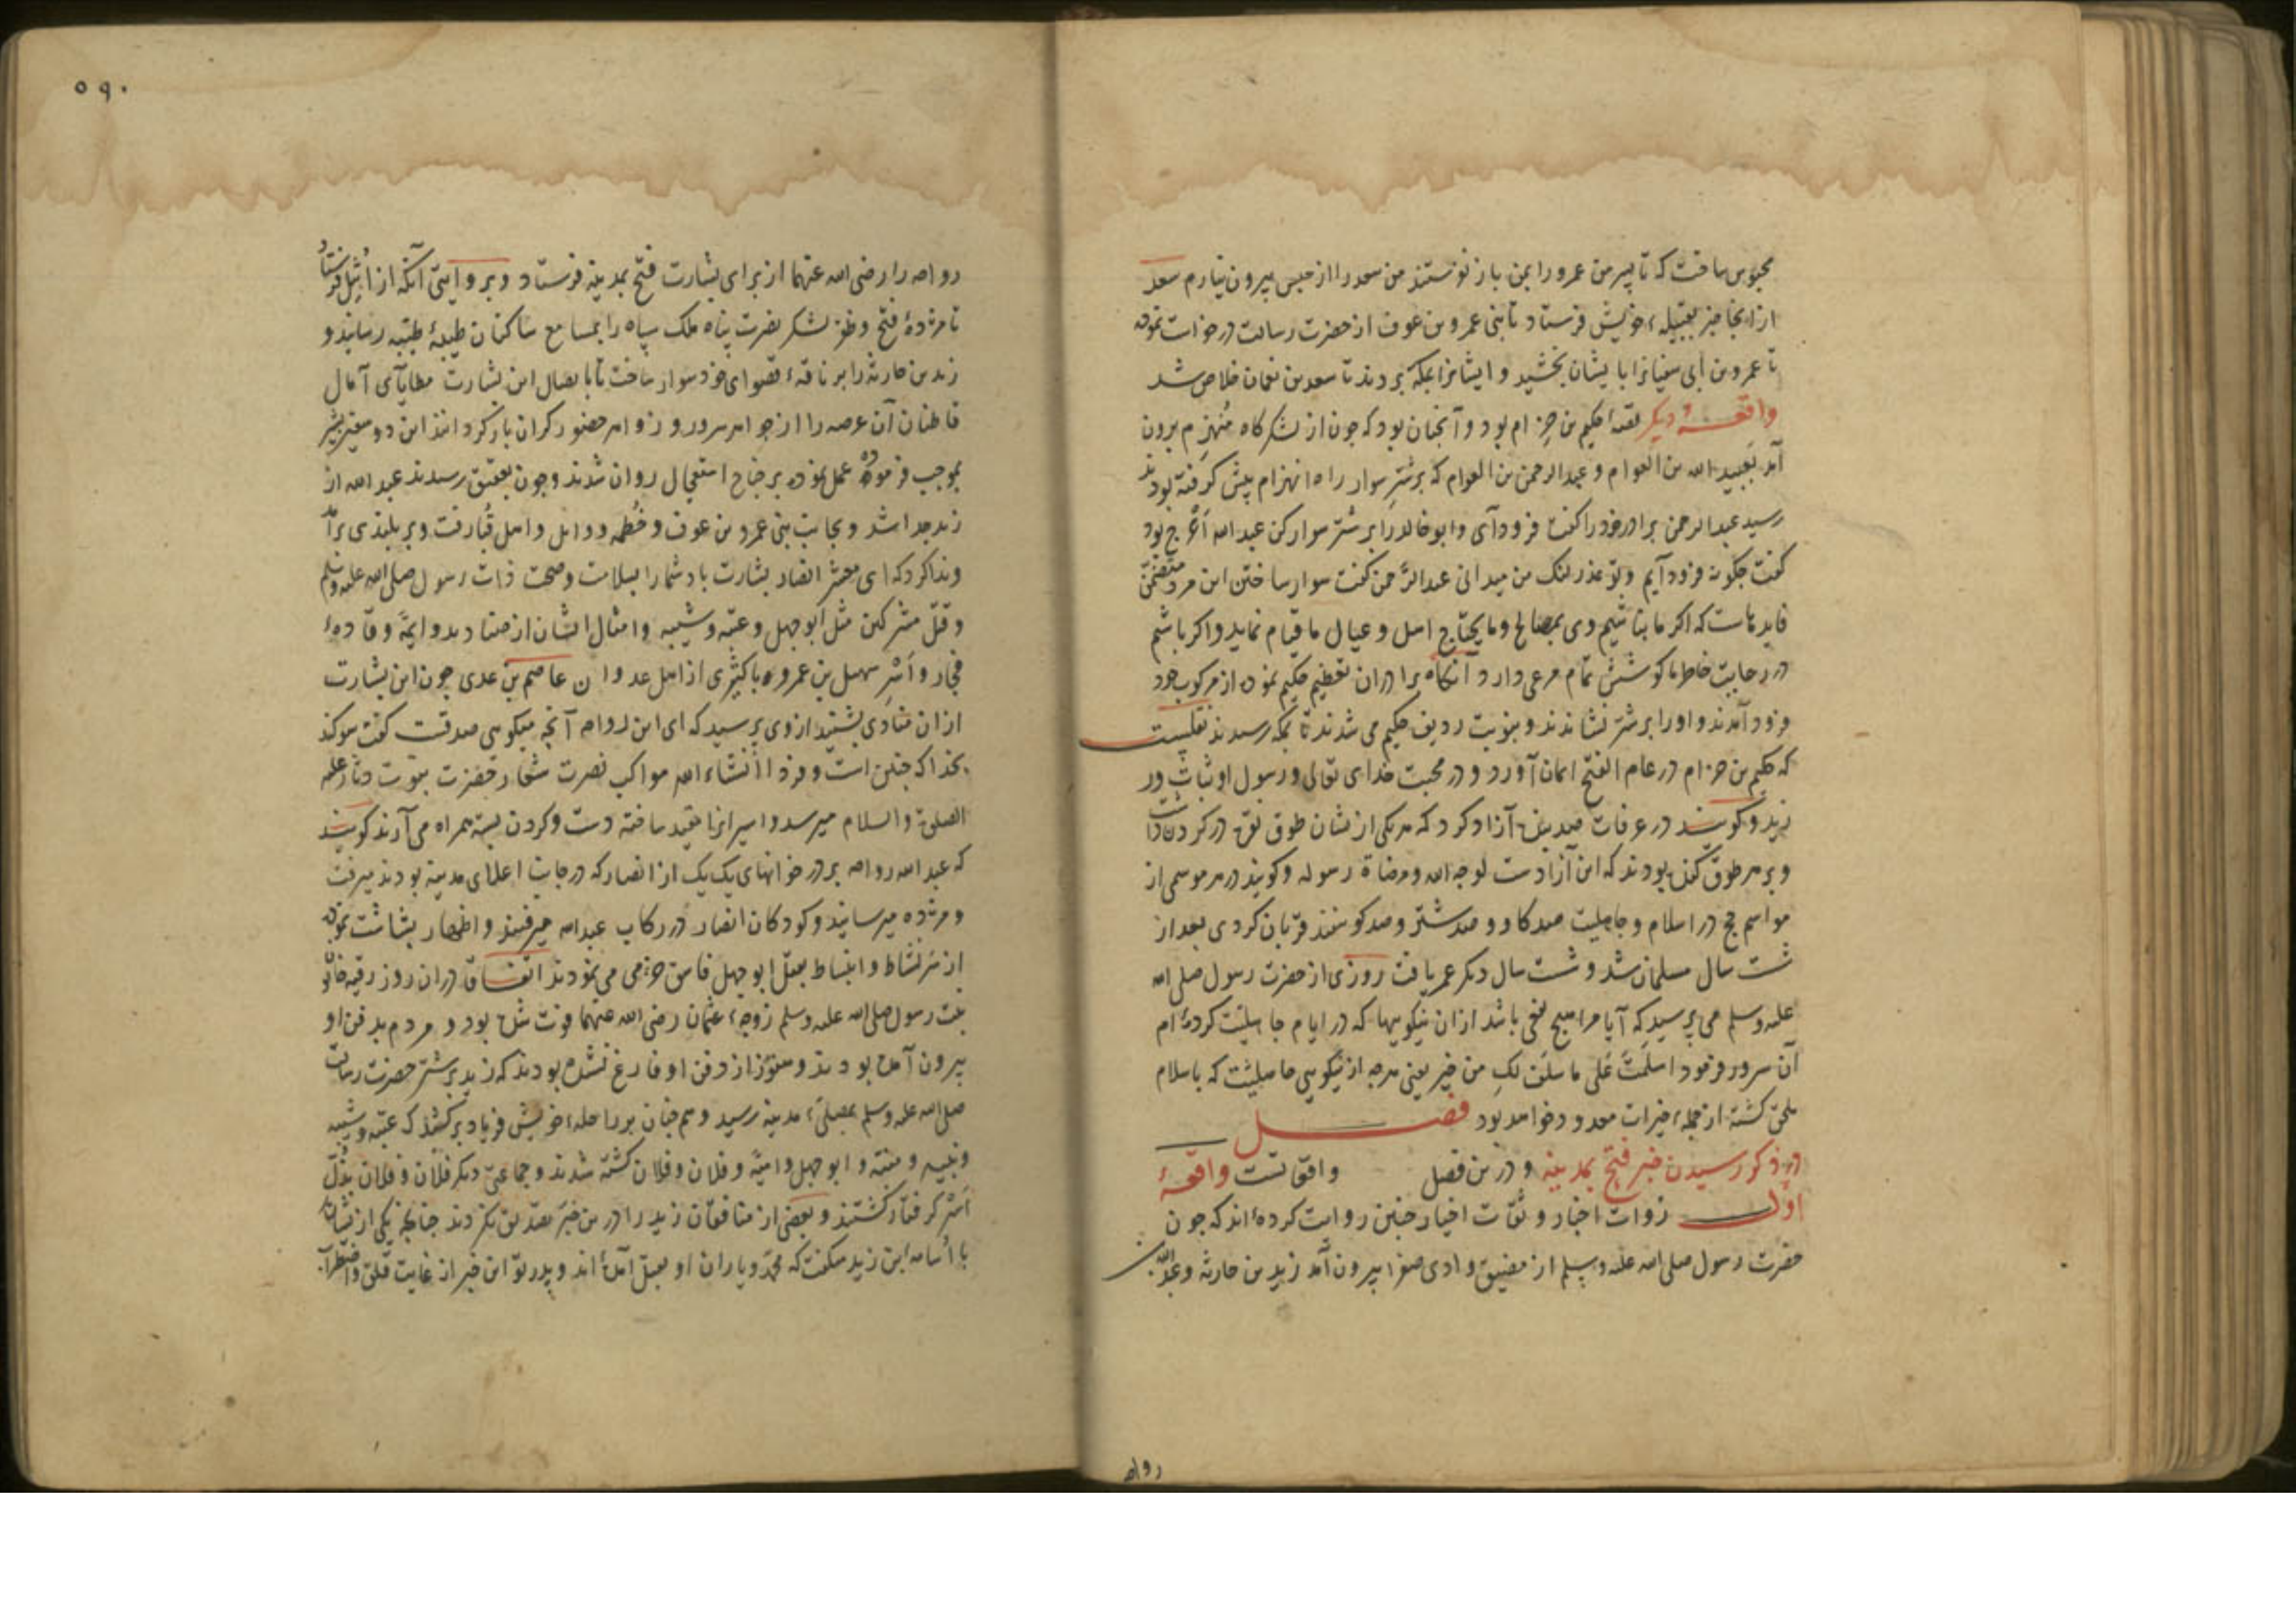 محبوس ساخت که تا پسر من عمرو را بمن باز نفرستند من سعد را از حبس بیرون نیارم سعد
از انجا خبر بقبیلهٔ خویش فرستاد تا بنی عمرو بن عوف از حضرت رسالت درخواست نموده
تا عمرو بن ابی سفیانرا بایشان بخشید و ایشانرا بمکه بردند تا سعد بن نعمان خلاص شد
واقعهٔ دیکر قصهٔ حکیم بن حزام بود و آنچنان بود که چون از لشکر کاه منهزم برون
آمد بعبید الله بن العوام و عبد الرحمن بن العوام که بر شتر سوار راه انهزام پیش کرفته بودند
رسید عبد الرحمن برادر خود را کفت فرود آی و ابو خالد را بر شتر سوار کن عبید الله اعرج بود
کفت چکونه فرود آیم و تو عذر لنک من میدانی عبد الرحمن کفت سوار ساختن این مرد متضمن
فایدهاست که اکر ما نباشیم وی بمصالح و ما یحتاج اهل و عیال ما قیام نماید و اکر باشیم
در رعایت خاطر ما کوشش تمام مرعی دارد آنکاه برادران تعظیم حکیم نموده از مرکوب خود
فرود آمدند و او را بر شتر نشاندند و بنوبت ردیف حکیم می شدند تا بمکه رسیدند نقلست
که حکیم بن حزام در عام الفتح ایمان آورد و در محبت خدای تعالی و رسول او ثبات ور
زید و کویند در عرفات صد بنده آزاد کرد که هر یکی ازیشان طوق نقره در کردن داشت
و بر هر طوق کنده بودند که این آزادست لوجه الله و مرضاة رسوله و کویند در هر موسمی از
مواسم حج در اسلام و جاهلیت صد کاو و صد شتر و صد کوسفند قربان کردی بعد از
شست سال مسلمان شد و شست سال دیکر عمر یافت روزی از حضرت رسول صلی الله
علیه وسلم می پرسید که آیا مرا هیچ نفعی باشد از آن نیکوییها که در ایام جاهلیت کرده‌ام
آن سرور فرمود اسلمت علی ما سلف لک من خیر یعنی هرچه از نیکویی جاهلیت که باسلام
ملحق کشته از جملهٔ خیرات معدود خواهد بود فصل
در ذکر رسیدن خبر فتح بمدینه و درین فصل واقعاتست واقعهٔ
اول رواة اخبار و ثقات اخیار چنین روایت کرده‌اند که چون
حضرت رسول صلی الله علیه وسلم از مضیق وادی صفرا بیرون آمد زید بن حارثه و عبد الله بن
رواحه
۵۹۰
رواحه را رضی الله عنهما از برای بشارت فتح بمدینه فرستاد و بروایتی آنکه از اثیل فرستاد
تا مژدهٔ فتح و ظفر لشکر نصرت پناه ملک سپاه را بمسامع ساکنان طیبهٔ طیبه رسانید و
زید بن حارثه را بر ناقهٔ قصوای خود سوار ساخت تا بایصال این بشارت مطایای آمال
قاطنان آن عرصه را از جواهر سرور و زواهر حضور کران بار کردانند این دو سفیر بشیر
بموجب فرموده عمل نموده بر جناح استعجال روان شدند و چون بعقیق رسیدند عبد الله از
زید جدا شد و بجانب بنی عمرو بن عوف و خطمه و وائل و اهل قبا رفت و بر بلندی برآمد
و ندا کرد که ای معشر انصار بشارت باد شما را بسلامت و صحت ذات رسول صلی الله علیه وسلم
و قتل مشرکین مثل ابو جهل و عتبه و شیبه و امثال ایشان از صنادید و ایمه و قادهٔ
فجار و اسر سهیل بن عمرو با کثیری از اهل عدوان عاصم بن عدی چون این بشارت
از آن منادی بشنید از وی پرسید که ای ابن رواحه آنچه میکویی صدقست کفت سوکند
بخدا که چنین است و فردا انشاء الله مواکب نصرت شعار حضرت نبوت دثار علیه
الصلوة والسلام میرسد و اسیرانرا مقید ساخته دست و کردن بسته همراه می آرند کویند
که عبد الله رواحه بر در خوانهای یک یک از انصار که در جانب اعلای مدینه بودند میرفت
و مژده میرسانید و کودکان انصار در رکاب عبد الله میرفتند و اظهار بشاشت نموده
از سر نشاط و انبساط بقتل ابو جهل فاسق خرمی می نمودند اتفاقا در آن روز رقیه خاتون
بنت رسول صلی الله علیه وسلم زوجهٔ عثمان رضی الله عنهما فوت شده بود و مردم بدفن او
بیرون آمده بودند و هنوز از دفن او فارغ نشده بودند که زید بر شتر حضرت رسالت
صلی الله علیه وسلم بمصلی مدینه رسید و هم چنان بر راحلهٔ خویش فریاد برکشید که عتبه و شیبه
و نبیه و منبه و ابو جهل و امیه و فلان و فلان کشته شدند و جماعتی دیکر فلان و فلان بذل
اسر کرفتار کشتند و بعضی از منافقان زید را درین خبر تصدیق نکردند چنانچه یکی ازیشان
با اسامه ابن زید میکفت که محمد و یاران او بقتل آمده‌اند و پدر تو این خبر از غایت قلق و اضطرآب